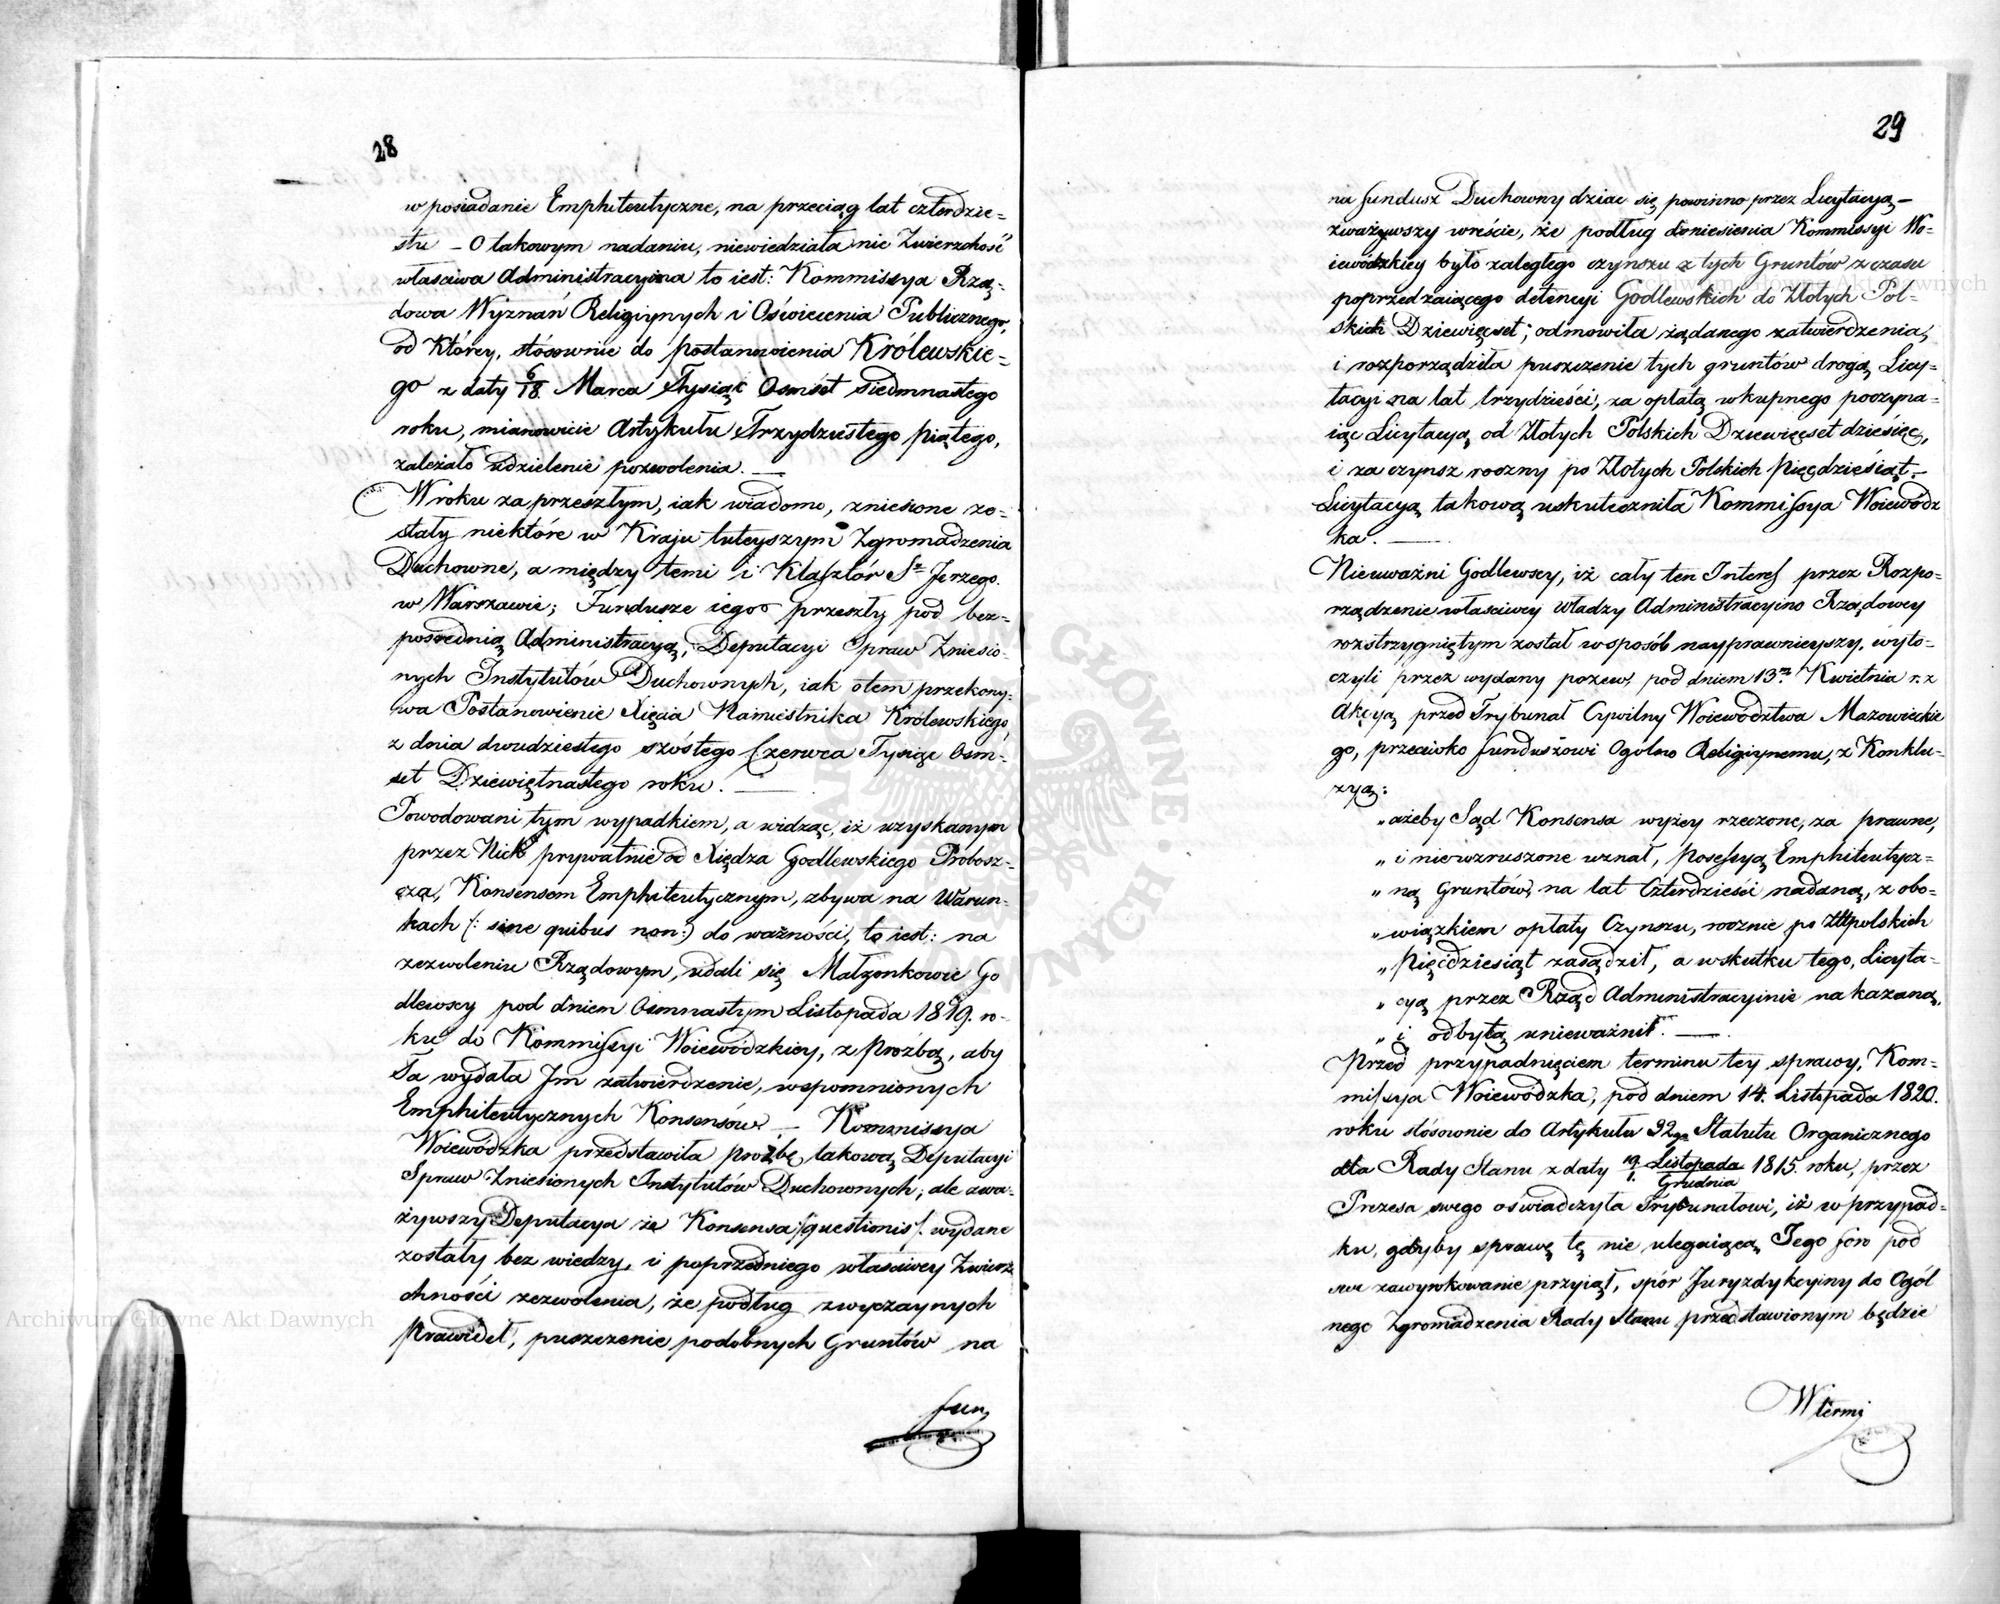 28
w posiadanie Emphiteutyczne, na przeciąg lat czterdzie=
stu – O takowym nadaniu, niewiedziała nic Zwierzchość
właściwa Administracyina to iest: Kommissya Rzą=
dowa Wyznań Religiynych i Oświecenia Publicznego,
od Którey, stósownie do postanowienia Królewskie=
go z daty 6/18 Marca Tysiąc Osmset siedmnastego
roku, mianowicie Artykułu Trzydziestego piątego,
zależało udzielenie pozwolenia. —
W roku zaprzeszłym, iak wiadomo, zniesione zo=
stały niektóre w Kraju tuteyszym Zgromadzenia
Duchowne, a między temi i Klasztór Sgo Jerzego
w Warszawie; Fundusze iego przeszły pod bez=
pośrednią Administracyą, Deputacyi Spraw Zniesio=
nych Instytutów Duchownych, iak otem przekony=
wa Postanowienie Xięcia Namiestnika Królewskiego,
z dnia dwudziestego szóstego Czerwca Tysiąc Osm=
set Dziewiętnastego roku. —
Powodowani tym wypadkiem, a widząc, iż uzyskanym
przez Nich prywatnie od Xiędza Godlewskiego Probosz=
cza, Konsensom Emphiteutycznym, zbywa na Warun=
kach (: sine quibus non:) do ważności, to iest: na
zezwoleniu Rządowym, udali się Małżonkowie Go
dlewscy pod dniem Osmnastym Listopada 1819. ro=
ku do Kommissyi Woiewódzkiey, z prożbą, aby
Ta wydała Im zatwierdzenie, wspomnionych
Emphiteutycznych Konsensów. — Kommissya
Woiewódzka przedstawiła prożbę takową Deputacyi
Spraw Zniesionych Instytutów Duchownych; ale zwa=
żywszy Deputacya że Konsensa /:questionis/: wydane
zostały bez wiedzy, i poprzedniego właściwey Zwierz
chności zezwolenia, że podług zwyczaynych
Prawideł, puszczenie podobnych Gruntów na
fun
29
na fundusz Duchowny dziać się powinno przez Licytacyą –
zważywszy wreście, że podług doniesienia Kommissyi Wo=
iewódzkiey było zaległego czynszu z tych Gruntów z czasu
poprzedzaiącego detencyi Godlewskich do Złotych Pol=
skich Dziewięcset; odmowiła żądanego zatwierdzenia,
i rozporządziła puszczenie tych gruntów drogą Licy=
tacyi na lat trzydzieści, za opłatą wkupnego poczyna=
iąc Licytacyą od Złotych Polskich Dziewięcset dziesięć,
i za czynsz roczny po Złotych Polskich Pięćdziesiąt. –
Licytacyą takową uskuteczniła Kommissya Woiewódz
ka. —
Nieuważni Godlewscy, iż cały ten Interes przez Rozpo=
rządzenie właściwey Władzy Administracyino Rządowey
rozstrzygniętym został w sposób nayprawnieyszy, wyto=
czyli przez wydany pozew, pod dniem 13m Kwietnia r. z
Akcyą przed Trybunał Cywilny Woiewództwa Mazowieckie
go, przeciwko funduszowi Ogólno Religiynemu, z Konklu=
zyą:
„ ażeby Sąd Konsensa wyżey rzeczone, za prawne,
„ i niewzruszone uznał, Possessyą Emphiteutycz=
„ ną Gruntów, na lat Czterdzieści nadaną, z obo=
„ wiązkiem opłaty Czynszu, rocznie po Złł polskich
„ Pięćdziesiąt zasądził, a wskutku tego, Licyta=
„ cyą przez Rząd Administracyinie nakazaną,
„ i odbytą unieważnił. —
Przed przypadnięciem terminu tey sprawy, Kom=
missya Woiewódzka, pod dniem 14. Listopada 1820.
roku stósownie do Artykułu 32go Statutu Organicznego
dla Rady Stanu z daty 19. Listopada/1. Grudnia 1815. roku, przez
Prezesa swego oświadczyła Trybunałowi, iż w przypad=
ku, gdyby sprawę tę nie ulegaiącą Jego foro pod
swe zawyrokowanie przyiął, spór Juryzdykcyiny do Ogól
nego Zgromadzenia Rady Stanu przedstawionym będzie
W termi
Archiwum Główne Akt Dawnych
Archiwum Główne Akt Dawnych